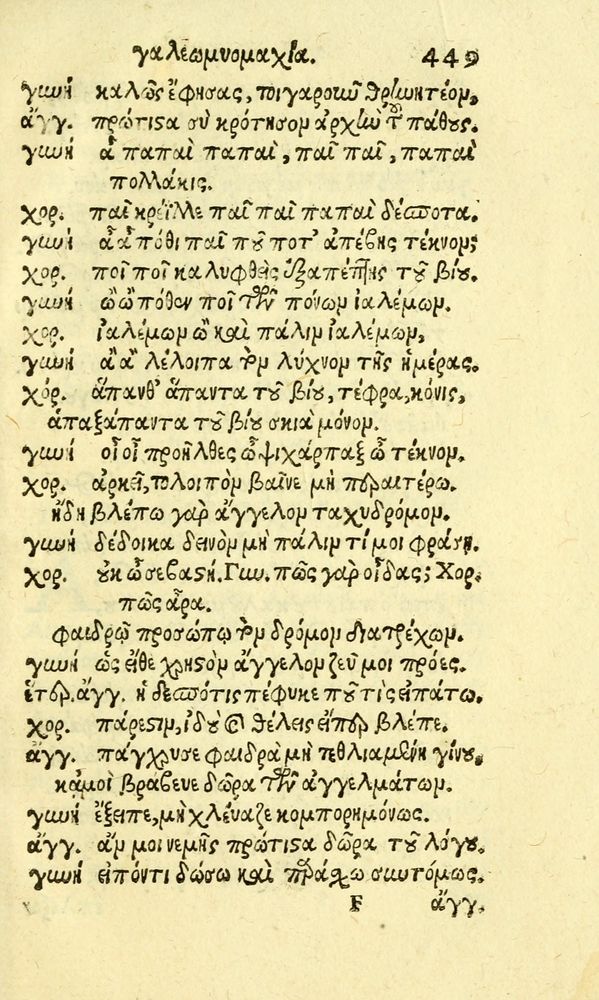 γαλεωμυομαχία. 449
γυνὴ καλῶς ἔφησας, τοιγαροῦν θρηνητέον.
ἄγγ. πρώτιστα σὺ κρότησον ἀρχὴν τοῦ πάθους.
γυνὴ ἆ παπαὶ παπαὶ, παῖ παῖ, παπαὶ
πολλάκις.
χορ. παῖ κρεΐλλε παῖ παῖ παπαὶ δέσποτα.
γυνὴ ἆ ἆ πόθι παῖ ποῦ ποτ' ἀπέβης τέκνον;
χορ. ποῖ ποῖ καλυφθεὶς ἐξαπέπτης τοῦ βίου.
γυνὴ ὢ ὢ πόθεν ποῖ τῶν πόνων ἰαλέμων.
χορ. ἰαλέμων ὢ καὶ πάλιν ἰαλέμων,
γυνὴ ἆ ἆ λέλοιπα τὸν λύχνον τῆς ἡμέρας.
χόρ. ἅπανθ' ἅπαντα τοῦ βίου, τέφρα, κόνις,
ἁπαξάπαντα τοῦ βίου σκιὰ μόνον.
γυνὴ οἶ οἶ προῆλθες ὦ ψιχάρπαξ ὦ τέκνον.
χορ. ἀρκεῖ, τολοιπὸν βαῖνε μὴ πουραιτέρω.
ἤδη βλέπω γὰρ ἄγγελον ταχυδρόμον.
γυνὴ δέδοικα δεινὸν μὴ πάλιν τί μοι φράσῃ.
χορ. οὐκ ὦ σεβαστή. Γυν. πῶς γὰρ οἶδας; Χορ.
πῶς ἄρα.
φαιδρῷ προσώπῳ τὸν δρόμον διατρέχων.
γυνὴ ὡς εἴθε χρηστὸν ἄγγελον ζεῦ μοι πρόες.
ἕτερ. ἄγγ. ἡ δεσπότις πέφυκε ποῦ τὶς εἰπάτω.
χορ. πάρεστιν, ἰδοὺ ὃ θέλεις εἴπερ βλέπε.
ἄγγ. πάγχρυσε φαιδρὰ μὴ τεθλιμμένη γίνου.
κἀμοὶ βράβευε δῶρα τῶν ἀγγελμάτων.
γυνὴ ἔξειπε, μὴ χλέναζε κομπορημόνως.
ἄγγ. ἄν μοι νεμῃς πρώτιστα δῶρα τοῦ λόγου.
γυνὴ εἰπόντι δώσω καὶ παράσχω συντόμως.
F ἄγγ.